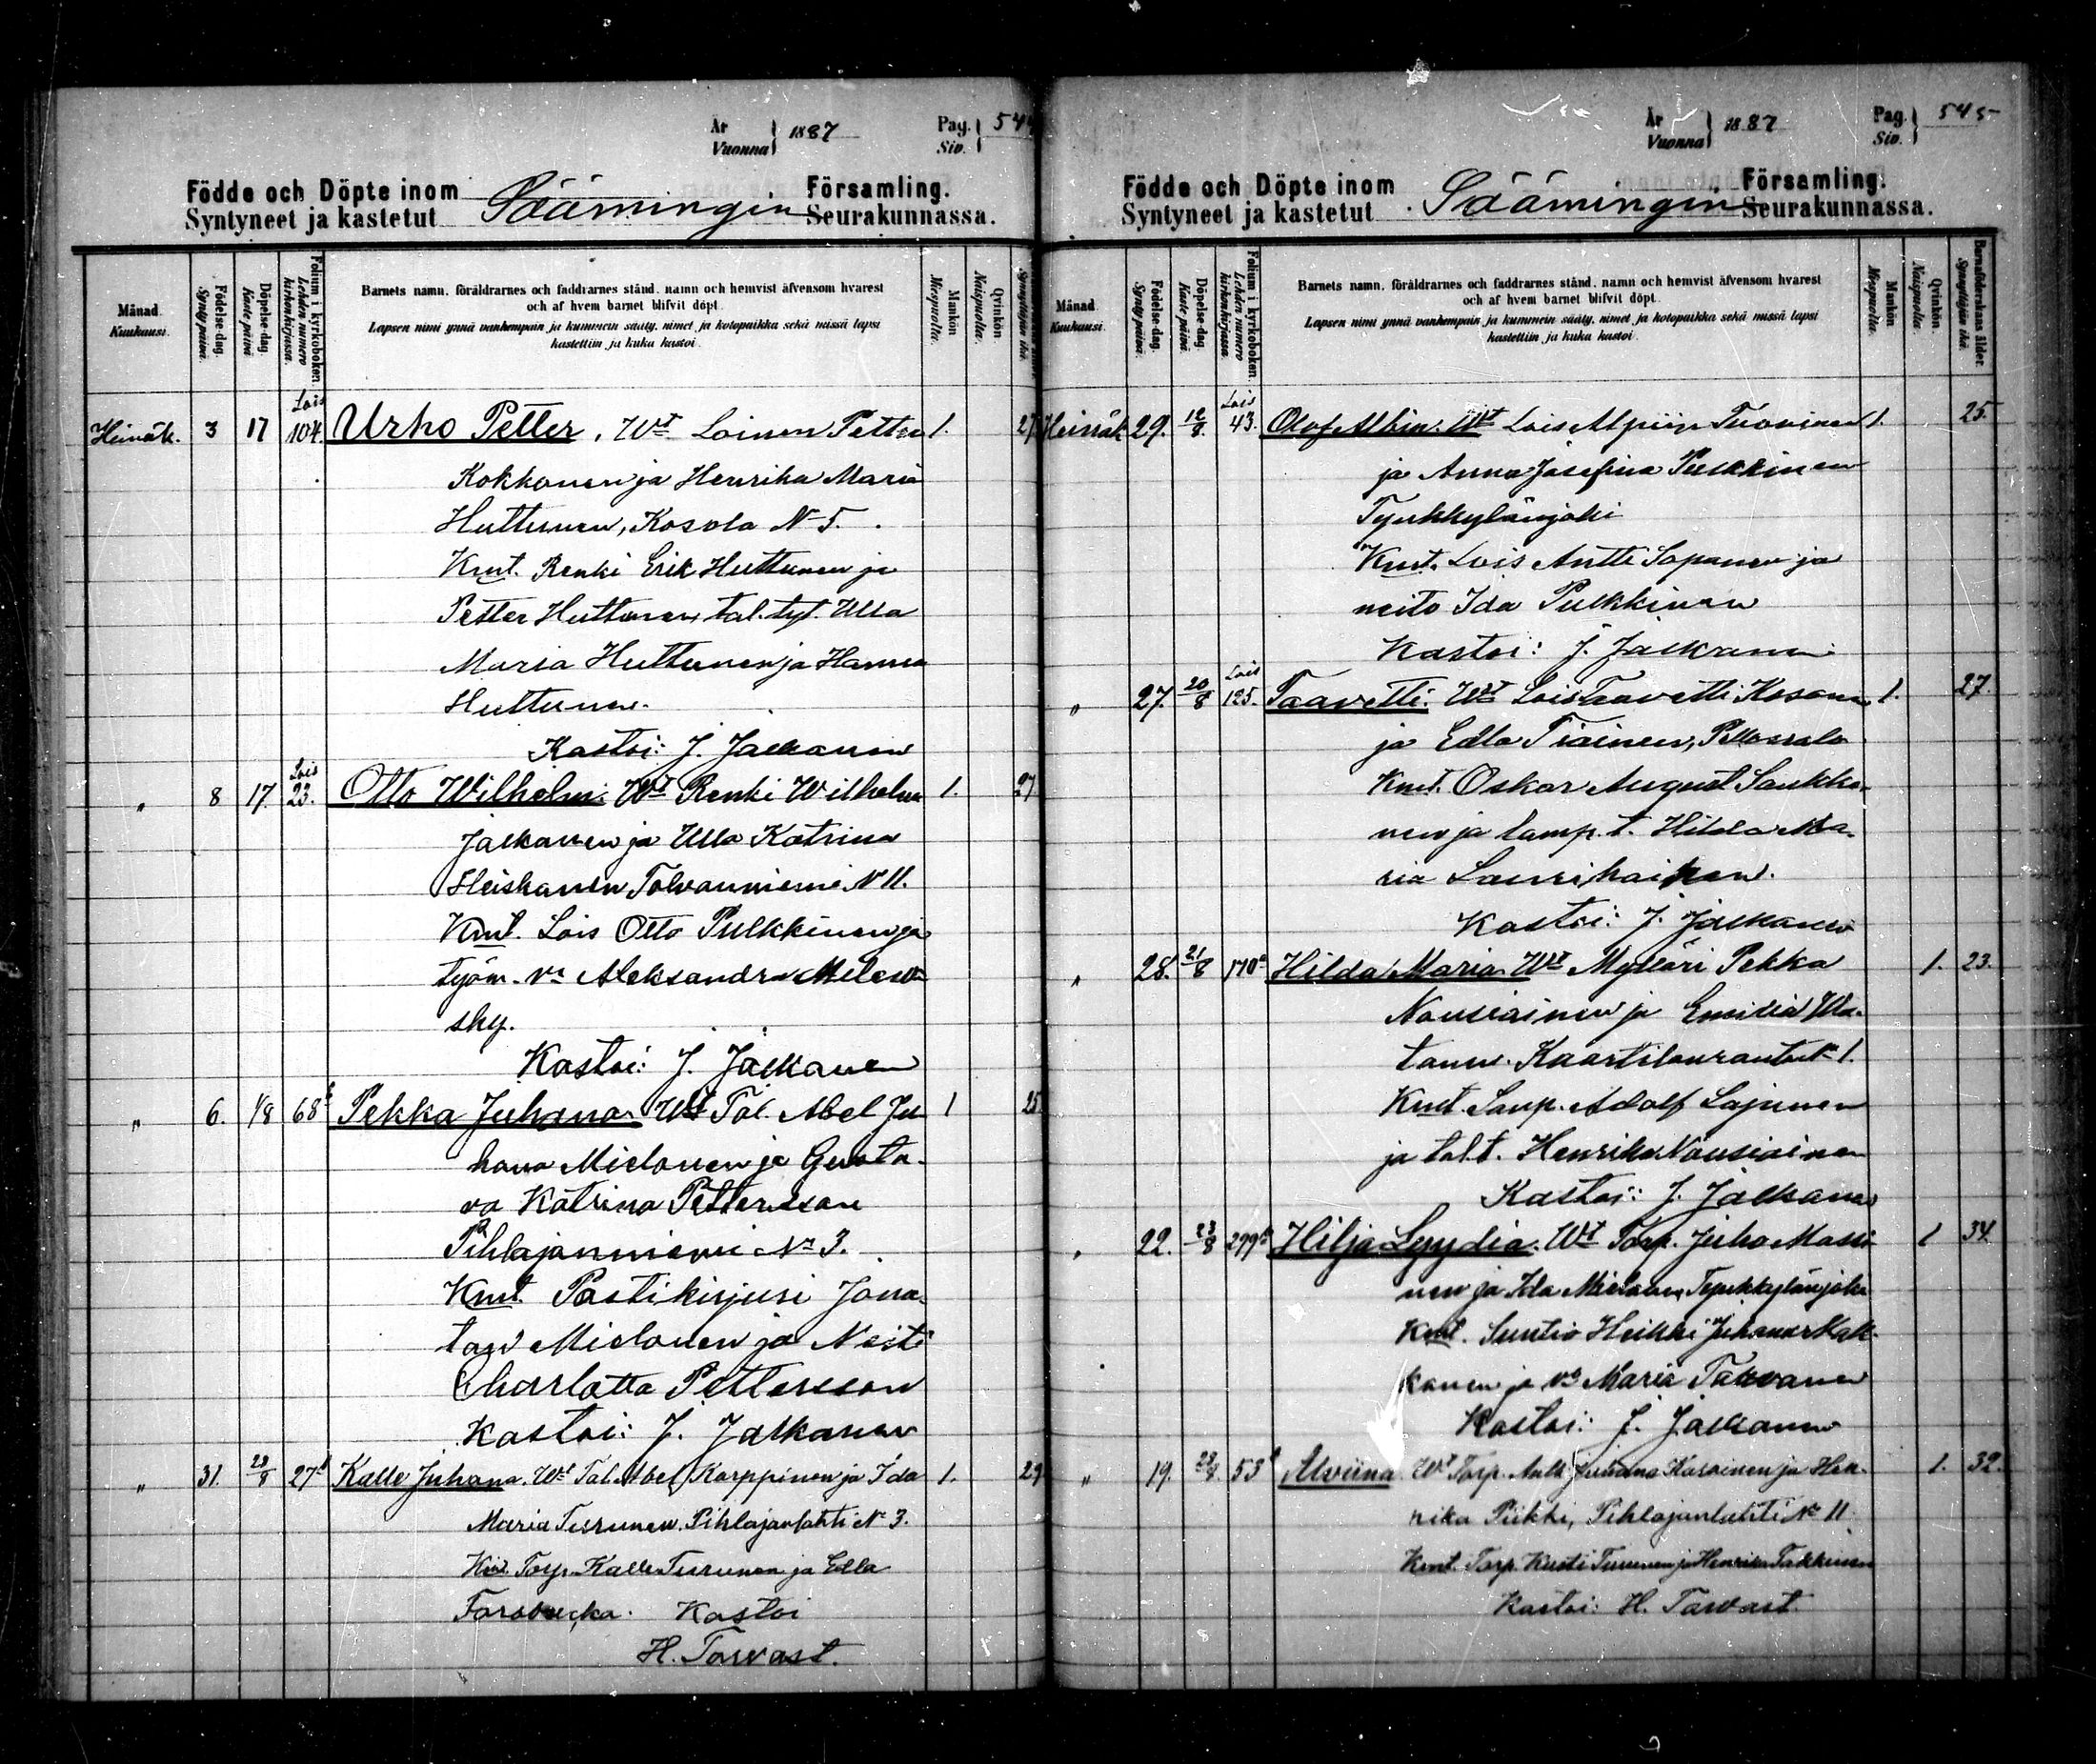 År
Vuonna
1887
Pag.
Siv.
544
Födde och Döpte inom Säämingin Församling.
Syntyneet ja kastetut Seurakunnassa.
Månad
Kuukausi.
Födelse-dag.
Synty päivä.
Döpelse-dag.
Kaste päivä
Folium i kyrkoboken
Lehden numero
kirkonkirjassa.
Barnets namn, föräldrarnes och faddrarnes stånd, namn och hemvist äfvensom hvarest
och af hvem barnet blifvit döpt.
Lapsen nimi ynnä vanhempain ja kummein sääty, nimet, ja kotopaikka sekä missä lapsi
kastettiin ja kuka kastoi.
Mankön
Miespuolta.
Qvinkön
Naispuolta.
Lois
Heinäk. 3 17 104. Urho Petter. Wt Loinen Pettu 1. 27
Kokkonen ja Henrika Maria
Huttunen, Kosola N 5.
Kmt. Renki Erik Huttunen ja
Petter Huttunen, tal. tyt. Ulla
Maria Huttunen ja Hanna
Huttunen.
Kastoi: J. Jalkanen
Lois
" 8 17. 23. Otto Wilhelm. Wt Renki Wilhelm 1. 27
Jalkanen ja Ulla Katrina
Heiskanen Tolvanniemi N 11.
Kmt. Lois Otto Pulkkinen ja
työm. va Aleksandra Milew
sky.
Kastoi: J. Jalkanen
" 6. 1/8 68 Pekka Juhana. Wt Tal. Abel Ju 1 25
hana Mielonen ja Gusta-
va Katrina Pettersson
Pihlajanniemi No 3.
Kmt. Postikirjuri Jona-
tan Mielonen ja Neiti
Charlotta Pettersson
Kastoi: J. Jalkanen
" 31. 28/8 27 Kalle Juhana. Wt Tal. Abel Karppinen ja Ida 1. 29
Maria Turunen. Pihlajanlahti N 3.
Torp. Kalle Turunen ja Edla
Kastoi
H. Tarvast.
År
Vuonna
1887
Pag.
Siv.
545
Födde och Döpte inom Säämingin Församling.
Syntyneet ja kastetut Seurakunnassa.
Månad
Kuukausi.
Födelse-dag.
Synty päivä.
Döpelse-dag.
Kaste päivä
Folium i kyrkoboken
Lehden numero
kirkonkirjassa.
Barnets namn, föräldrarnes och faddrarnes stånd, namn och hemvist äfvensom hvarest
och af hvem barnet blifvit döpt.
Lapsen nimi ynnä vanhempain ja kummein sääty, nimet, ja kotopaikka sekä missä lapsi
kastettiin ja kuka kastoi.
Mankön
Miespuolta.
Qvinkön.
Naispuolta.
Barnaföderskans ålder.
Synnyttäjän ikä.
Lois
Heinäk 29. 12/8. 43. Olof Albin. Wt Lois Alpiin Tuovinen 1. 25.
ja Anna Josefina Pulkkinen
Tynkkylänjoki
Kmt. Lois Antti Sopanen ja
neito Ida Pulkkinen
Kastoi: J. Jalkanen
Lois
" 27. 20/8 125. Taavetti. Wt Lois Taavetti Kosonen 1. 27.
ja Edla Tiainen, Pellossalo
Kmt. Oskar August Laukka-
nen ja lamp. t. Hilda Ma-
ria Laurikainen.
Kastoi: J. Jalkanen
" 28. 21/8 170 Hilda Maria. Wt Mylläri Pekka 1. 23.
Nousiainen ja Emilia
Kaartilanranta N 1.
Kmt. Adolf Lajunen
ja tal. t. Henrika Nousiainen
Kastoi: J. Jalkanen
" 22. 28/8 299 Hilja Lyydia. Wt Torp. Juho Massi 1 34.
nen ja Ida Mielonen, Tynkkylänjoki
Kmt. Suntio Heikki Juhana Kak-
konen ja va Maria Tolvanen
Kastoi: J. Jalkanen
" 19. 28/8. 53 Alviina. Wt Torp. Antti Juhana Karvinen ja Hen- 1. 32.
rika Piikki, Pihlajanlahti No 11.
Kmt. Torp. Kusti Turunen ja Henrika Takkinen
Kastoi: H. Tarvast.